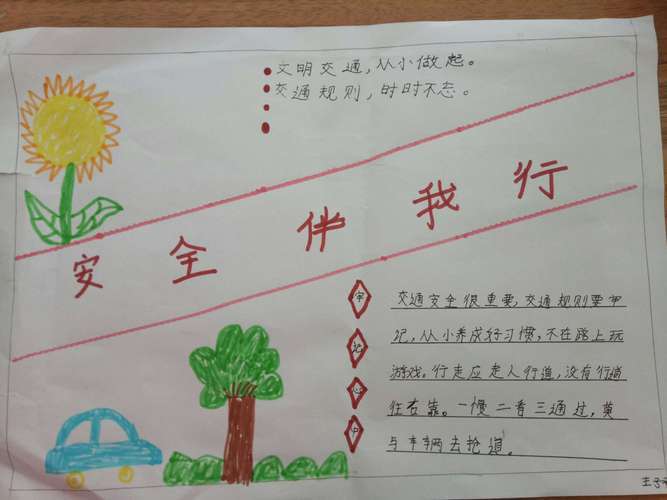 文明交通,从小做起。
交通规则,时时不忘。
安全伴我行
牢
记
心
中
交通安全很重要,交通规则要牢
记,从小养成好习惯,不在路上玩
游戏。行走应走人行道,没有行道
往右靠。一慢二看三通过,莫
与车辆去抢道。